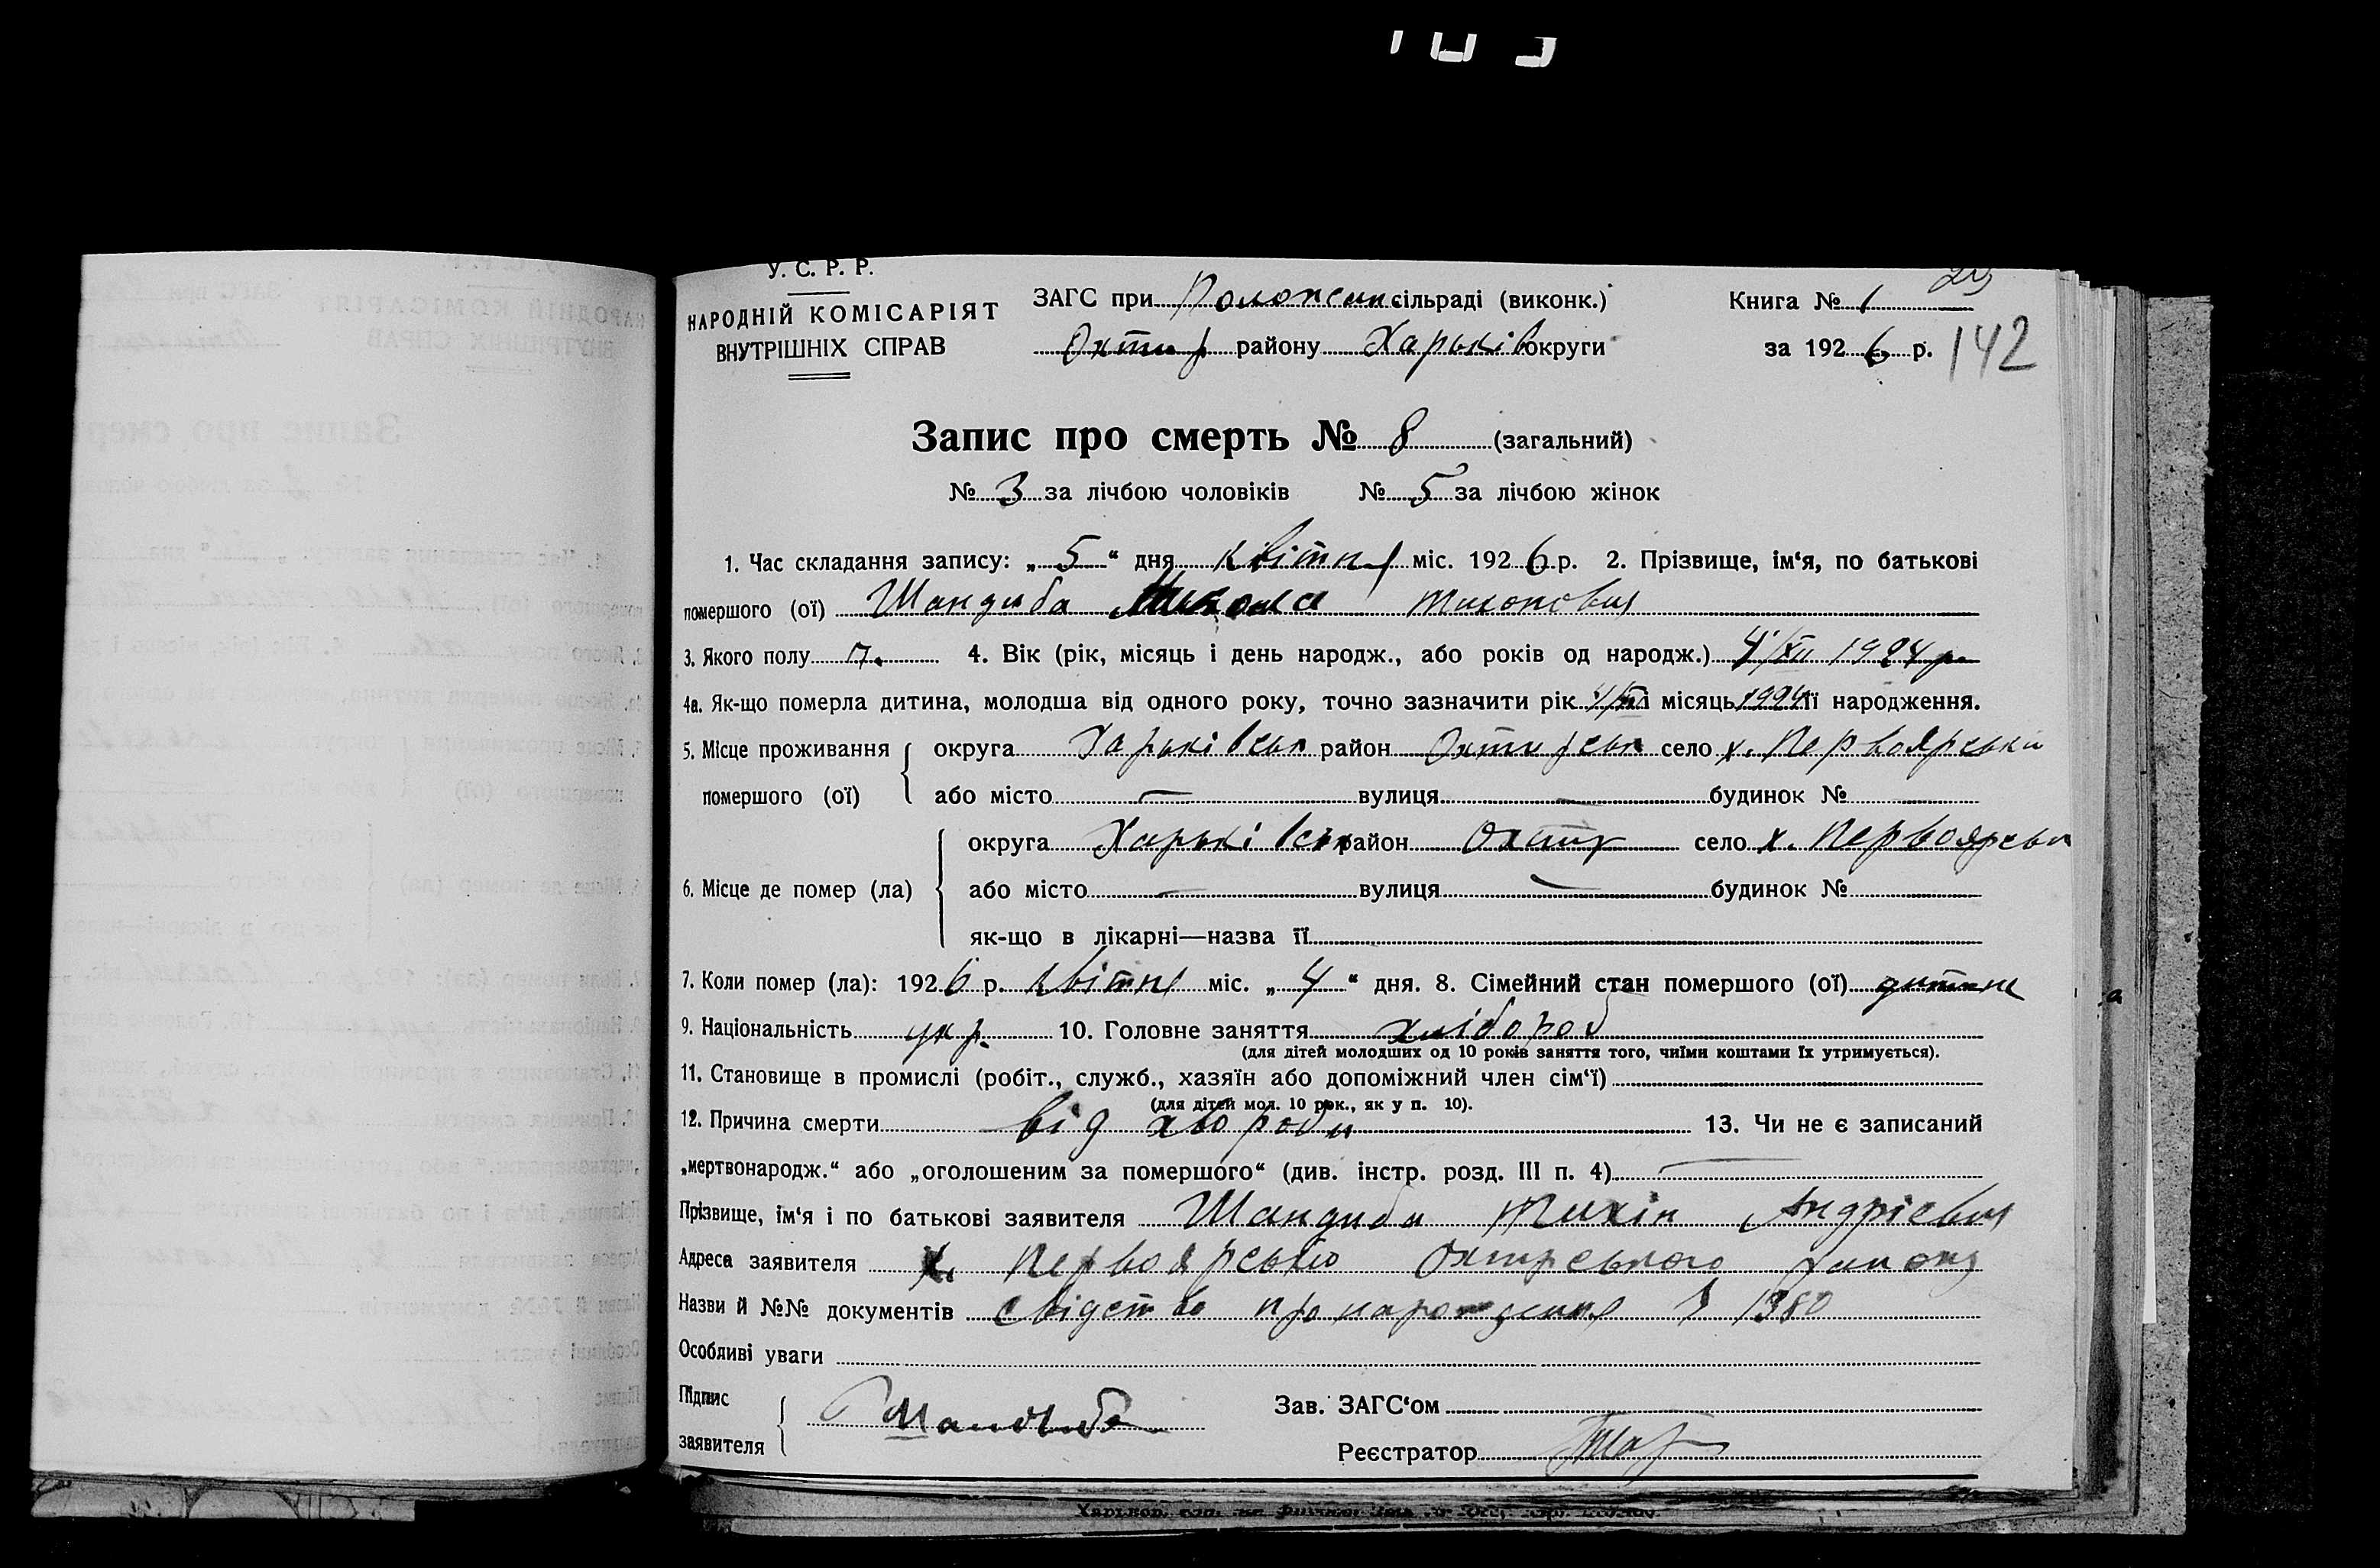 У. С. Р. Р.
НАРОДНІЙ КОМІСАРІЯТ
ВНУТРІШНІХ СПРАВ
ЗАГС при сільраді (виконк.)
Охтир району Харьків округи
Книга № 1
за 1926 р. 142
Запис про смерть № 8 (загальний)
№ 3 за лічбою чоловіків № 5 за лічбою жінок
1. Час складання запису: „5“ дня квітня міс. 1926 р. 2. Прізвище, ім‘я, по батькові
помершого (ої) Шандиба Микола Тихонович
3. Якого полу 4. Вік (рік, місяць і день народж., або років од народж.) 4/XII 1924 р.
4а. Як-що померла дитина, молодша від одного року, точно зазначити рік і місяць 1924 її народження.
5. Місце проживання помершого (ої) округа Харьківськ район Охтирськ село х. Первоярськи
або місто — вулиця — будинок №
6. Місце де помер (ла) округа Харьківськ район Охтир село х. Первоярськ
або місто — вулиця — будинок №
як-що в лікарні—назва її
7. Коли помер (ла): 1926 р. квітня міс. „4“ дня. 8. Сімейний стан помершого (ої) дитина
9. Національність укр. 10. Головне заняття хлібороб
(для дітей молодших од 10 років заняття того, чиїми коштами їх утримується).
11. Становище в промислі (робіт., служб., хазяїн або допоміжний член сім‘ї)
(для дітей мол. 10 рок., як у п. 10).
12. Причина смерти від хвороби 13. Чи не є записаний
„мертвонародж.“ або „оголошеним за помершого“ (див. інстр. розд. III п. 4) —
Прізвище, ім‘я і по батькові заявителя Шандиба Тихін Андрієвич
Адреса заявителя х. Первоярське Охтирського району
Назви й №№ документів свідетво про народження 1380
Особливі уваги
Підпис заявителя Шандиба
Зав. ЗАГС‘ом
Реєстратор